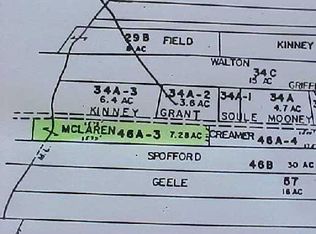 29B FIELD KINNEY
8 AC
WALTON
34C
15 AC
34A-3 34A-2 34A-1 34A
6.4 AC 3.6 AC 4.7 AC
KINNEY GRANT SOULE MOONEY
MCLAREN 46A-3 7.28 AC CREAMER 46A-4
SPOFFORD
46B 30 AC
GEELE 57
16 AC